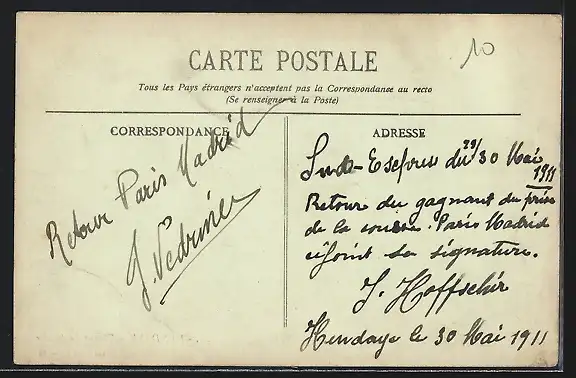 10
CARTE POSTALE
Tous les Pays étrangers n'acceptent pas la Correspondance au recto
(Se renseigner à la Poste)
CORRESPONDANCE
Retour Paris Madrid
J. Vedrines
ADRESSE
Sud-Express du 29/30 Mai
1911
Retour du gagnant du prix
de la course. Paris Madrid
ci joint sa signature.
J. Hoffschir
Hendaye le 30 Mai 1911